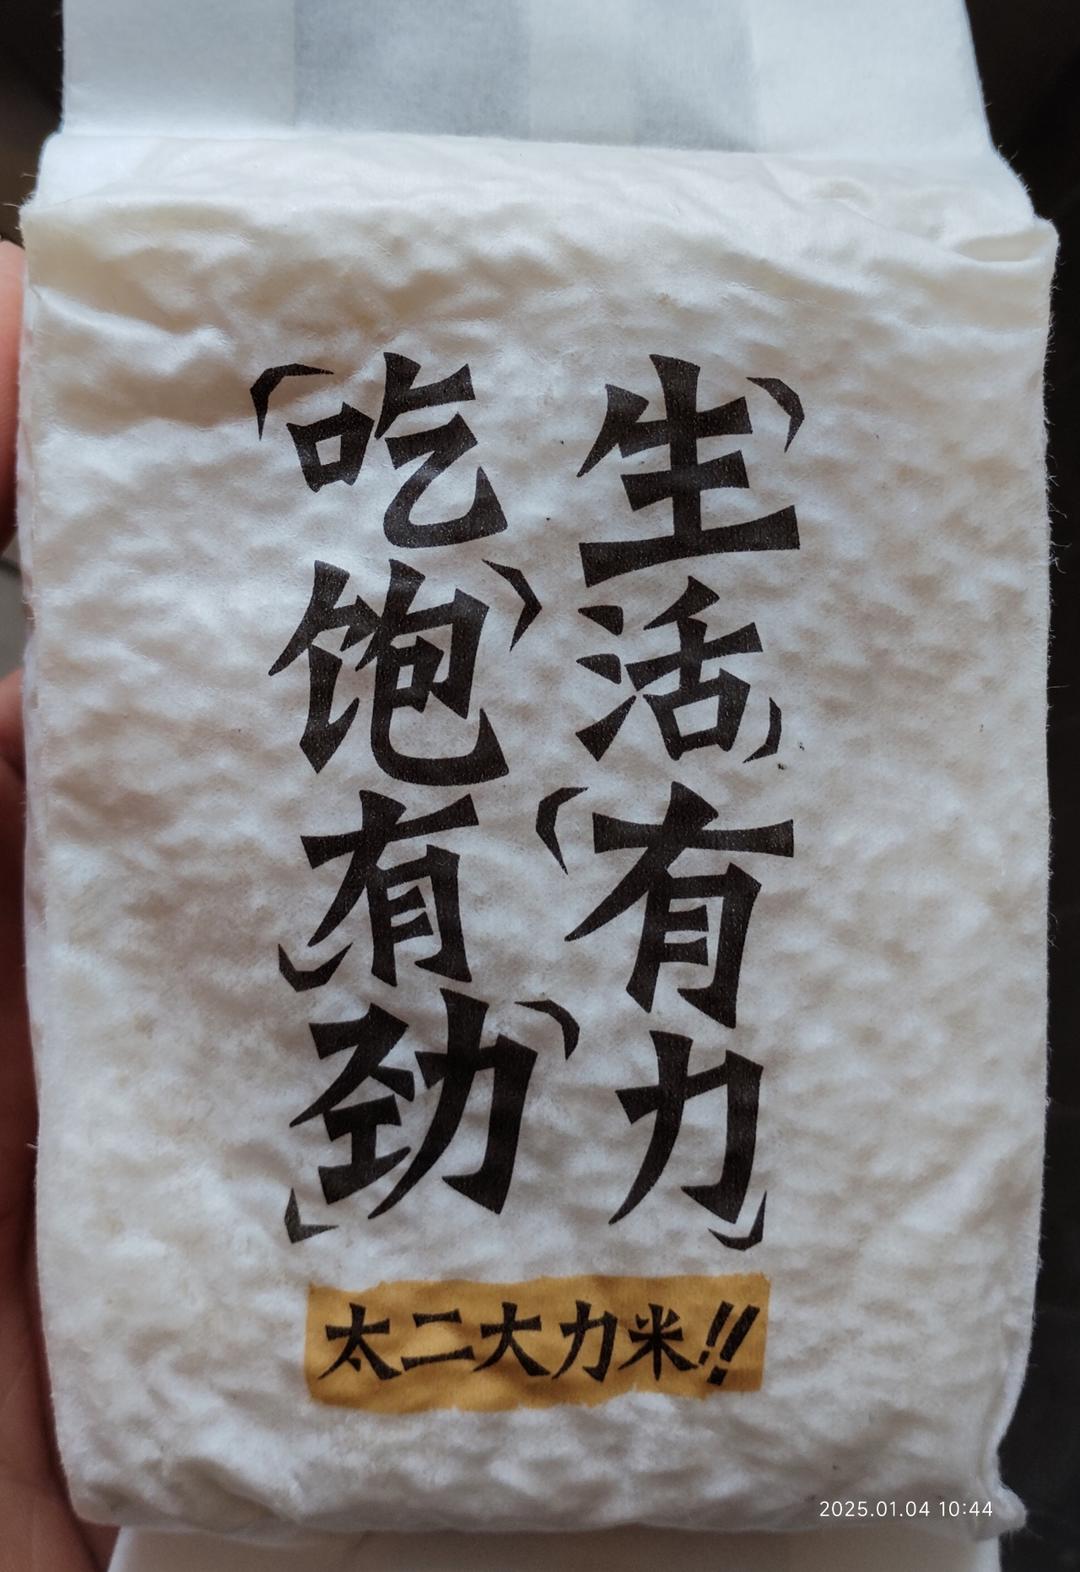 吃饱有劲
生活有力
太二大力米!!
2025.01.04 10:44